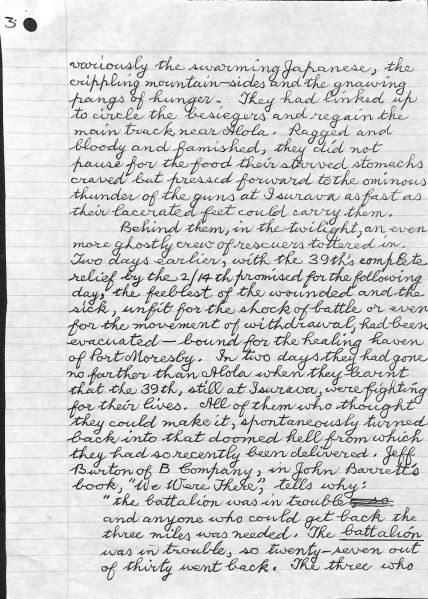 3.
variously the swarming Japanese, the
crippling mountain-sides and the gnawing
pangs of hunger. They had linked up
to circle the besiegers and regain the
main track near Alola. Ragged and
bloody and famished, they did not
pause for the food their starved stomachs
craved but pressed forward to the ominous
thunder of the guns at Isurava as fast as
their lacerated feet could carry them.
Behind them, in the twilight, an even
more ghostly crew of rescuers tottered in.
Two days earlier, with the 39th's complete
relief by the 2/14th promised for the following
day, the feeblest of the wounded and the
sick, unfit for the shock of battle or even
for the movement of withdrawal, had been
evacuated — bound for the healing haven
of Port Moresby. In two days they had gone
no farther than Alola when they learnt
that the 39th, still at Isurava, were fighting
for their lives. All of them who thought
they could make it, spontaneously turned
back into that doomed hell from which
they had so recently been delivered. Jeff
Burton of B Company, in John Barrett's
book, "We Were There", tells why:
"the battalion was in trouble
and anyone who could get back the
three miles was needed. The battalion
was in trouble, so twenty-seven out
of thirty went back. The three who